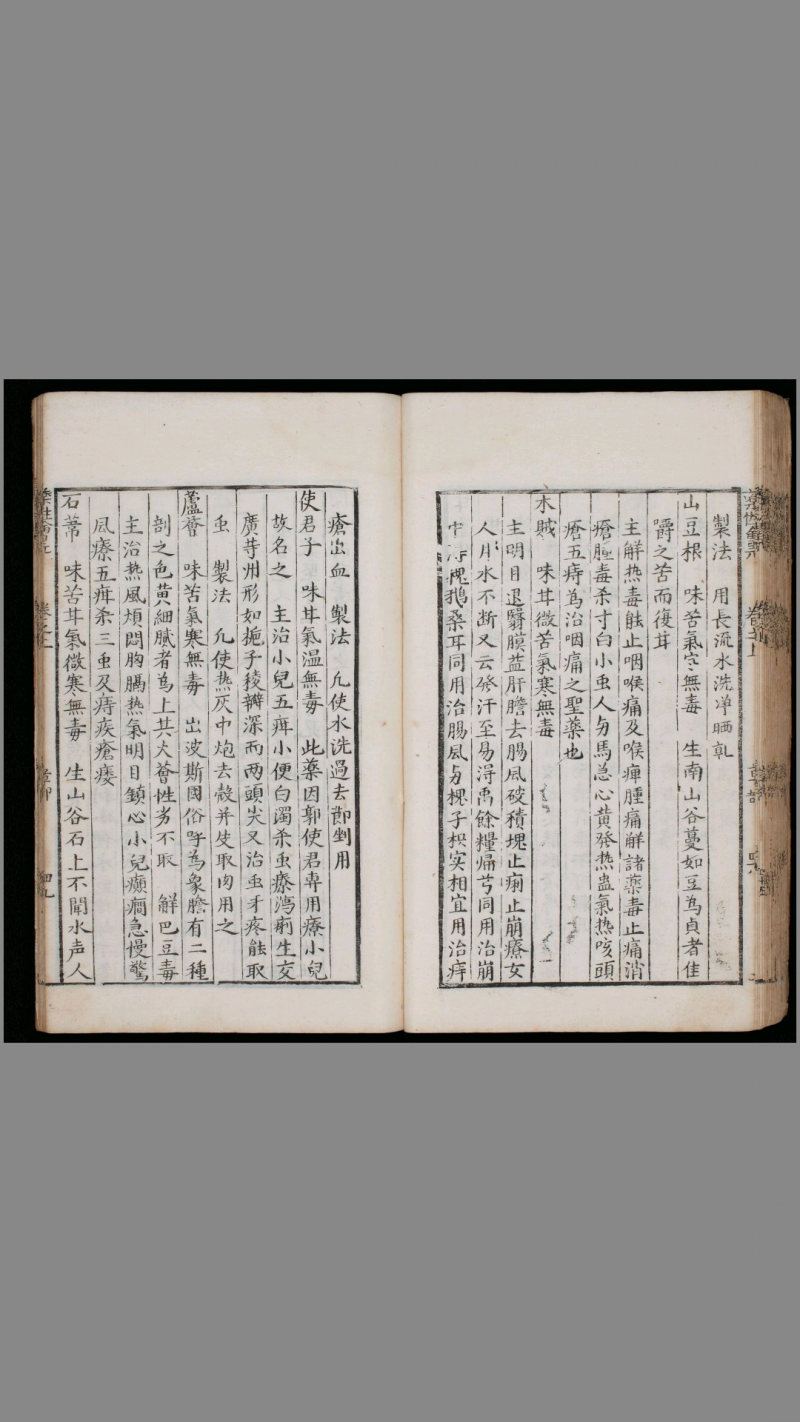 製法　用長流水洗淨晒乹
山豆根　味苦氣寒無毒　生南山谷蔓如豆為貞者佳
嚼之苦而復甘
主解热毒䏻止咽喉痛及喉痺腫痛觧諸薬毒止痛消
瘡腫毒杀寸白小虫人与馬急心黄發热蛊氣热咳頭
瘡五痔為治咽痛之聖薬也
木賊　味甘微苦氣寒無毒
主明目退翳膜益肝膽去腸風破積塊止痢止崩療女
人月水不断又云發汗至易淂禹餘糧㷌芎同用治崩
槐鵝桑耳同用治腸風与槐子枳实相宜用治痔
瘡出血　製法　凢使水洗過去節剉用
使君子　味甘氣温無毒　此薬因郭使君専用療小兒
故名之　主治小兒五疳小便白濁杀虫療㵼痢生交
廣䓁州形如梔子稜瓣深而两頭尖又治虫牙疼䏻取
虫　製法　凢使热灰中炮去殼并皮取肉用之
蘆薈　味苦氣寒無毒　出波斯國俗呼為象膽有二種
剖之色黄細膩者為上其大薈性劣不取　解巴豆毒
主治热風煩悶胸膈热氣明目鎮心小兒癲癎急慢驚
風療五疳杀三虫及痔疾瘡瘻
石葦　味苦甘氣微寒無毒　生山谷石上不聞水声人